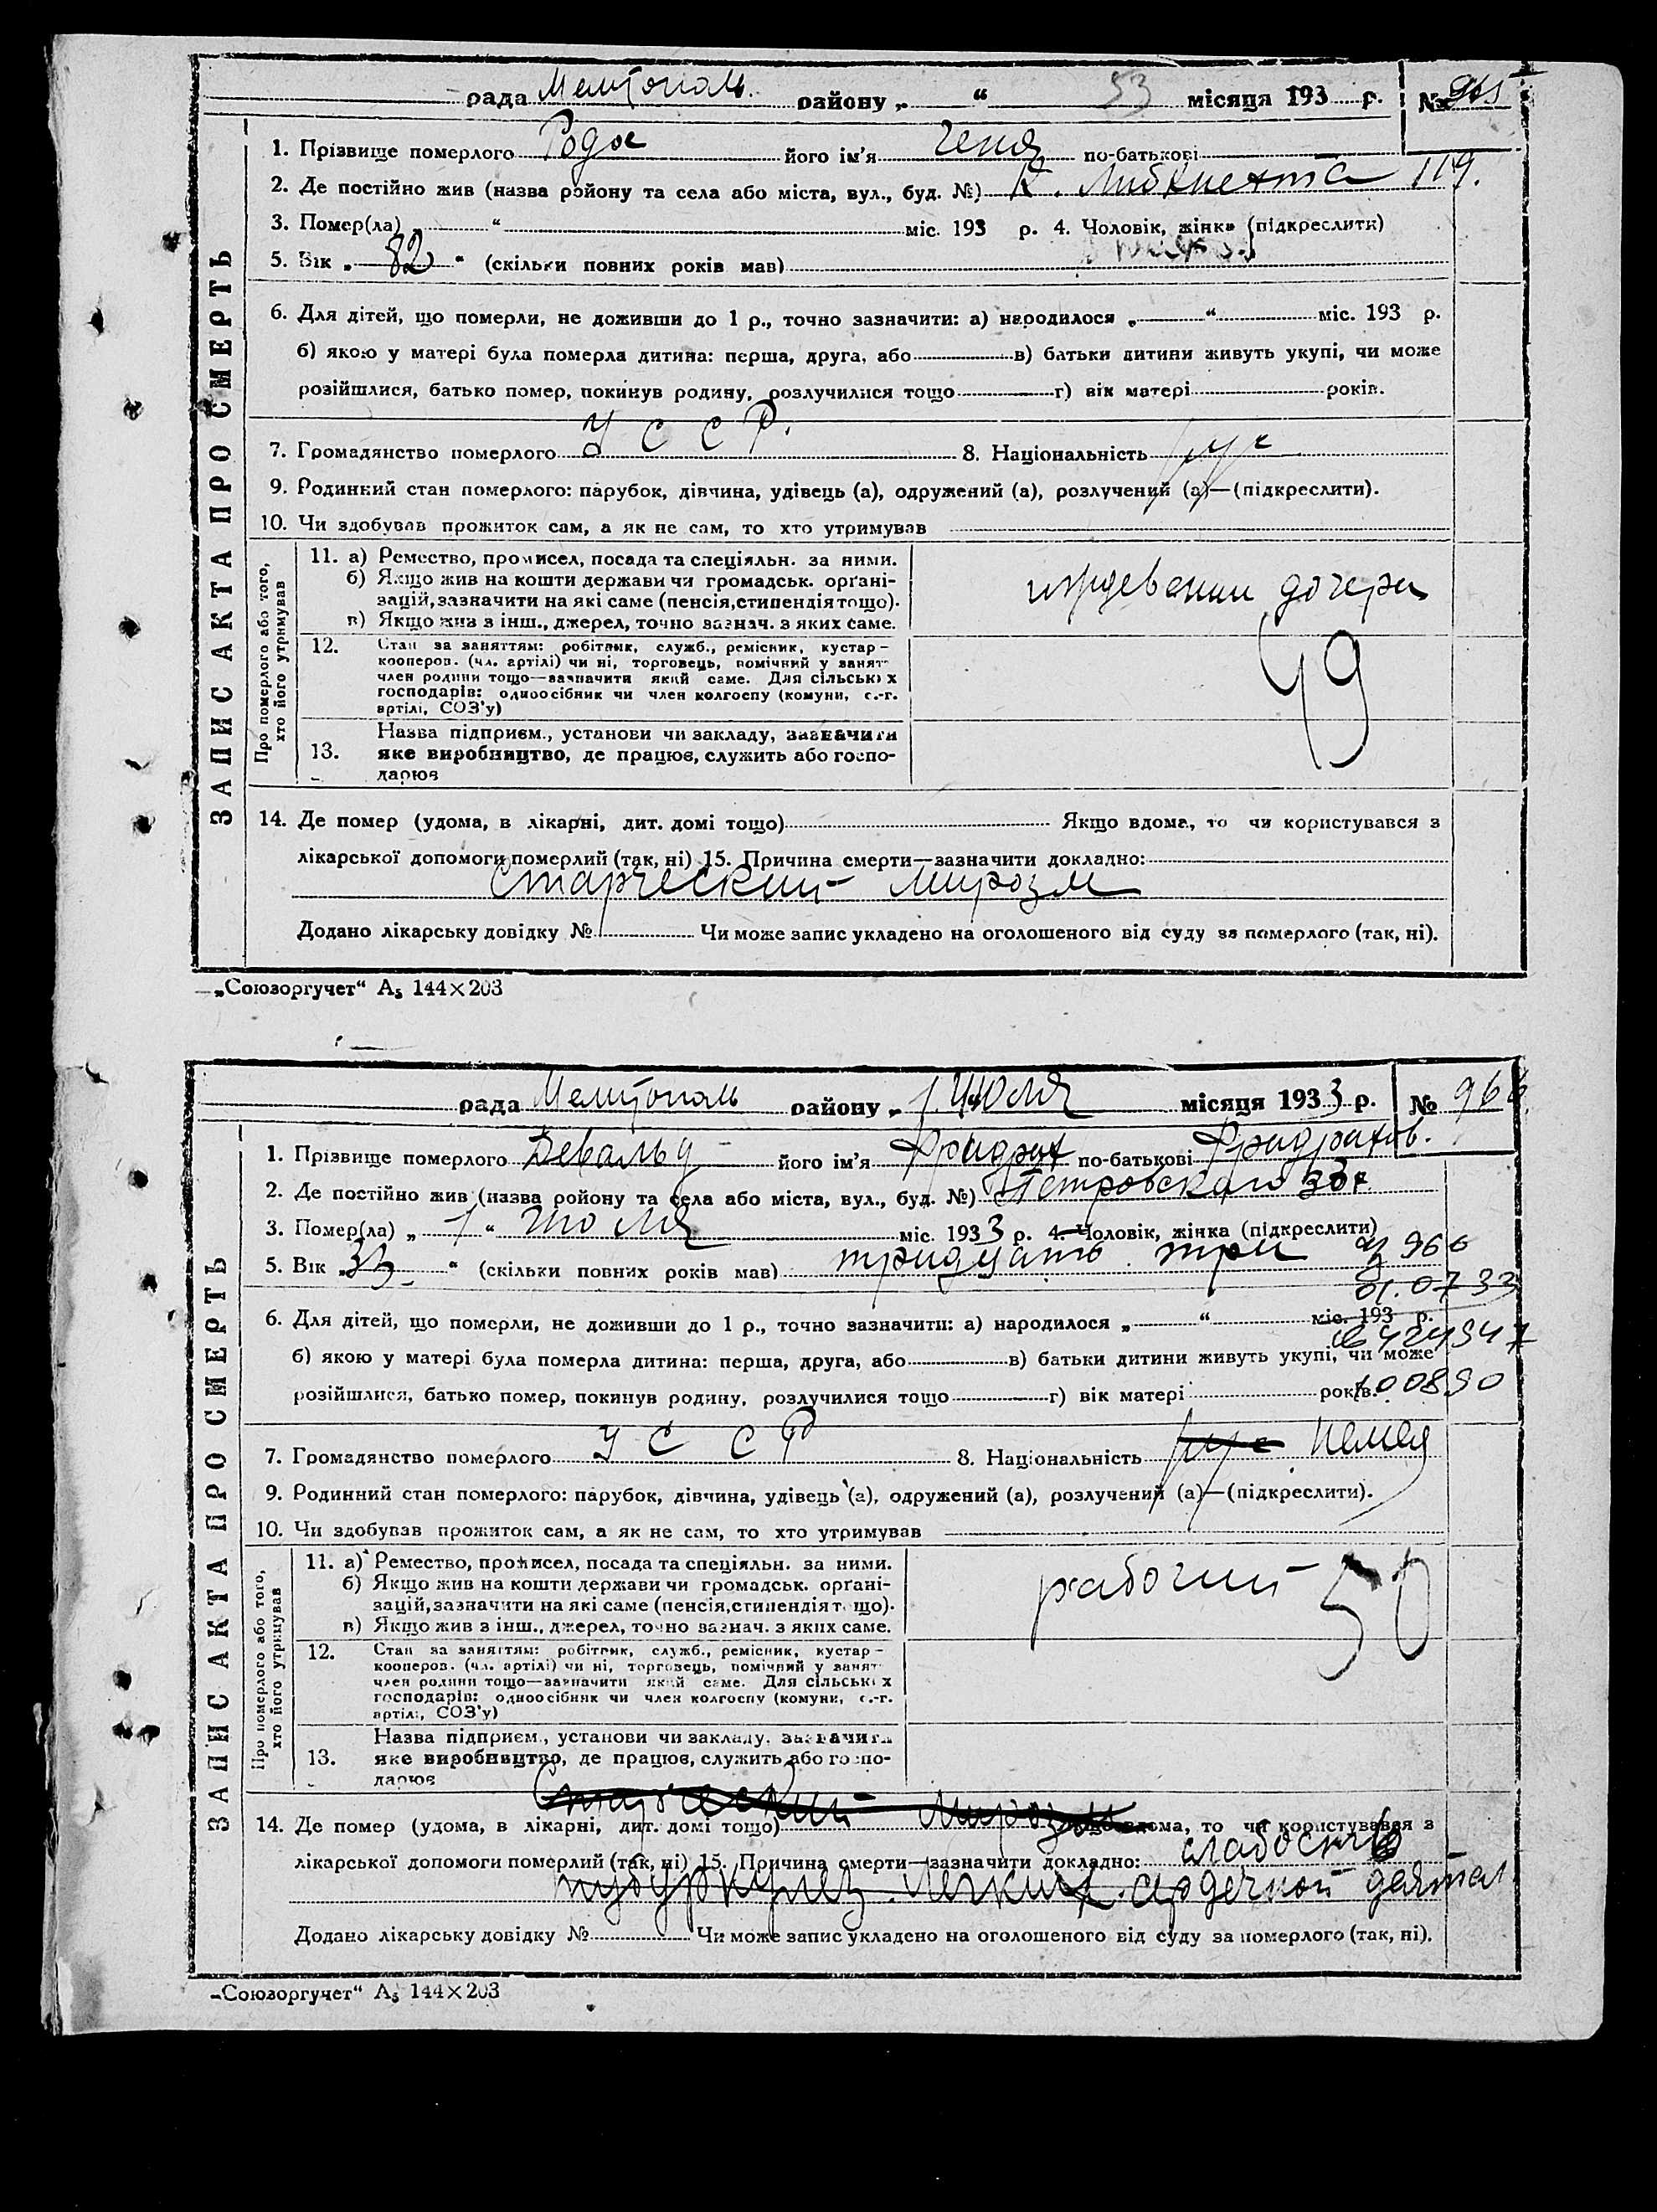 рада Мелитополь району „ “ 53 місяця 193 р. № 965
1. Прізвище померлого Родос його ім'я Геня по-батькові
2. Де постійно жив (назва району та села або міста, вул., буд. №) К. Либкнехта 119.
3. Помер(ла) „ “ міс. 193 р. 4. Чоловік, жінка (підкреслити)
5. Вік „ 82 “ (скільки повних років мав)
6. Для дітей, що померли, не доживши до 1 р., точно зазначити: а) народилося „ “ міс. 193 р.
б) якою у матері була померла дитина: перша, друга, або в) батьки дитини живуть укупі, чи може
розійшлися, батько помер, покинув родину, розлучилися тощо г) вік матері років.
7. Громадянство померлого У С С Р. 8. Національність рус
9. Родинний стан померлого: парубок, дівчина, удівець (а), одружений (а), розлучений (а)—(підкреслити).
10. Чи здобував прожиток сам, а як не сам, то хто утримував
ЗАПИС АКТА ПРО СМЕРТЬ
Про померлого або того,
хто його утримував
11. а) Ремество, промисел, посада та спеціяльн. за ними.
б) Якщо жив на кошти держави чи громадськ. орґані-
зацій, зазначити на які саме (пенсія, стипендія тощо).
в) Якщо жив з інш., джерел, точно зазнач. з яких саме.
иждевении дочери
49
12. Стан за заняттям: робітник, служб., ремісник, кустар-
кооперов. (чл. артілі) чи ні, торговець, помічний у занят-
член родини тощо—зазначити який саме. Для сільських
господарів: одноосібник чи член колгоспу (комуни, с.-г.
артілі, СОЗ'у)
13. Назва підприєм., установи чи закладу, зазначити
яке виробництво, де працює, служить або госпо-
дарює
14. Де помер (удома, в лікарні, дит. домі тощо) Якщо вдома, то чи користувався з
лікарської допомоги померлий (так, ні) 15. Причина смерти—зазначити докладно:
Старческий мирозм
Додано лікарську довідку № Чи може запис укладено на оголошеного від суду за померлого (так, ні).
„Союзоргучет“ А5 144×203
рада Мелитополь району „ 1. Июля місяця 1933 р. № 966
1. Прізвище померлого Девальд його ім'я Фридрих по-батькові Фридрихов.
2. Де постійно жив (назва району та села або міста, вул., буд. №) Петровского 33
3. Помер(ла) „ 1 “ Июля міс. 1933 р. 4. Чоловік, жінка (підкреслити)
5. Вік „ 33 “ (скільки повних років мав) тридцать три 966
01.07 33
6. Для дітей, що померли, не доживши до 1 р., точно зазначити: а) народилося „ “ міс. 193 р.
б) якою у матері була померла дитина: перша, друга, або в) батьки дитини живуть укупі, чи може
розійшлися, батько помер, покинув родину, розлучилися тощо г) вік матері років. 100890
7. Громадянство померлого У С С Р 8. Національність рус Немец
9. Родинний стан померлого: парубок, дівчина, удівець (а), одружений (а), розлучений (а)—(підкреслити).
10. Чи здобував прожиток сам, а як не сам, то хто утримував
ЗАПИС АКТА ПРО СМЕРТЬ
Про померлого або того,
хто його утримував
11. а) Ремество, промисел, посада та спеціяльн. за ними.
б) Якщо жив на кошти держави чи громадськ. орґані-
зацій, зазначити на які саме (пенсія, стипендія тощо).
в) Якщо жив з інш., джерел, точно зазнач. з яких саме.
рабочий 50
12. Стан за заняттям: робітник, служб., ремісник, кустар-
кооперов. (чл. артілі) чи ні, торговець, помічний у занят-
член родини тощо—зазначити який саме. Для сільських
господарів: одноосібник чи член колгоспу (комуни, с.-г.
артілі, СОЗ'у)
13. Назва підприєм., установи чи закладу, зазначити
яке виробництво, де працює, служить або госпо-
дарює
Старческий мирозм
14. Де помер (удома, в лікарні, дит. домі тощо) Якщо вдома, то чи користувався з
лікарської допомоги померлий (так, ні) 15. Причина смерти—зазначити докладно: слабость
туберкулез легких. сердечной деятел
Додано лікарську довідку № Чи може запис укладено на оголошеного від суду за померлого (так, ні).
„Союзоргучет“ А5 144×203